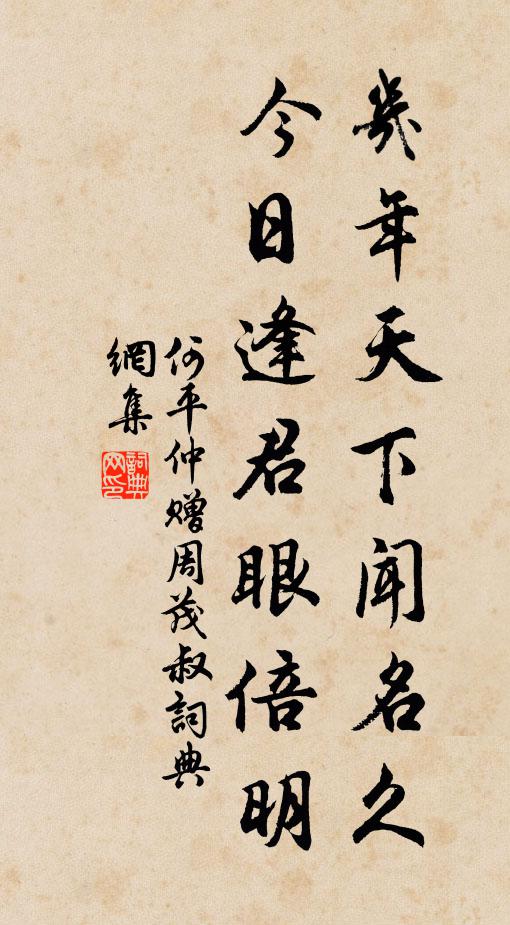 幾年天下闻名久
今日逢君眼倍明
何平仲赠周茂叔詞典
網集
詞典网印